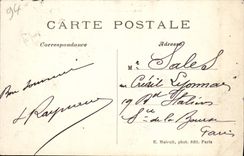 94
CARTE POSTALE
Correspondance
Adresse
Mr Sales
au Crédit Lyonnais
19 Bd Italiens
Sce de la Bourse
Paris
Bon souvenir
E. Malcuit, phot. édit. Paris